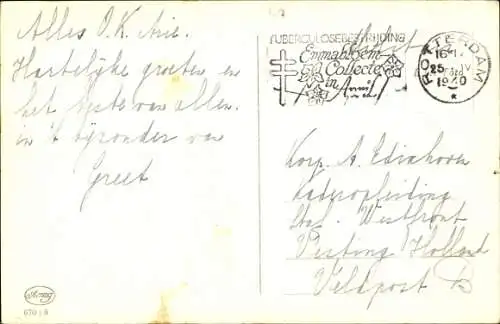 Alles O.K. Arie.
Hartelijke groeten en
het beste van allen.
in 't bijzonder van
Greet
TUBERCULOSEBESTRIJDING
Emmabloem-
Collecte
in
ROTTERDAM
16-
25 IV
1940
Korp. A. Eðinhoven
Kaderopleiding
Staf. Westfront
Vesting Holland
Veldpost
670 / 8